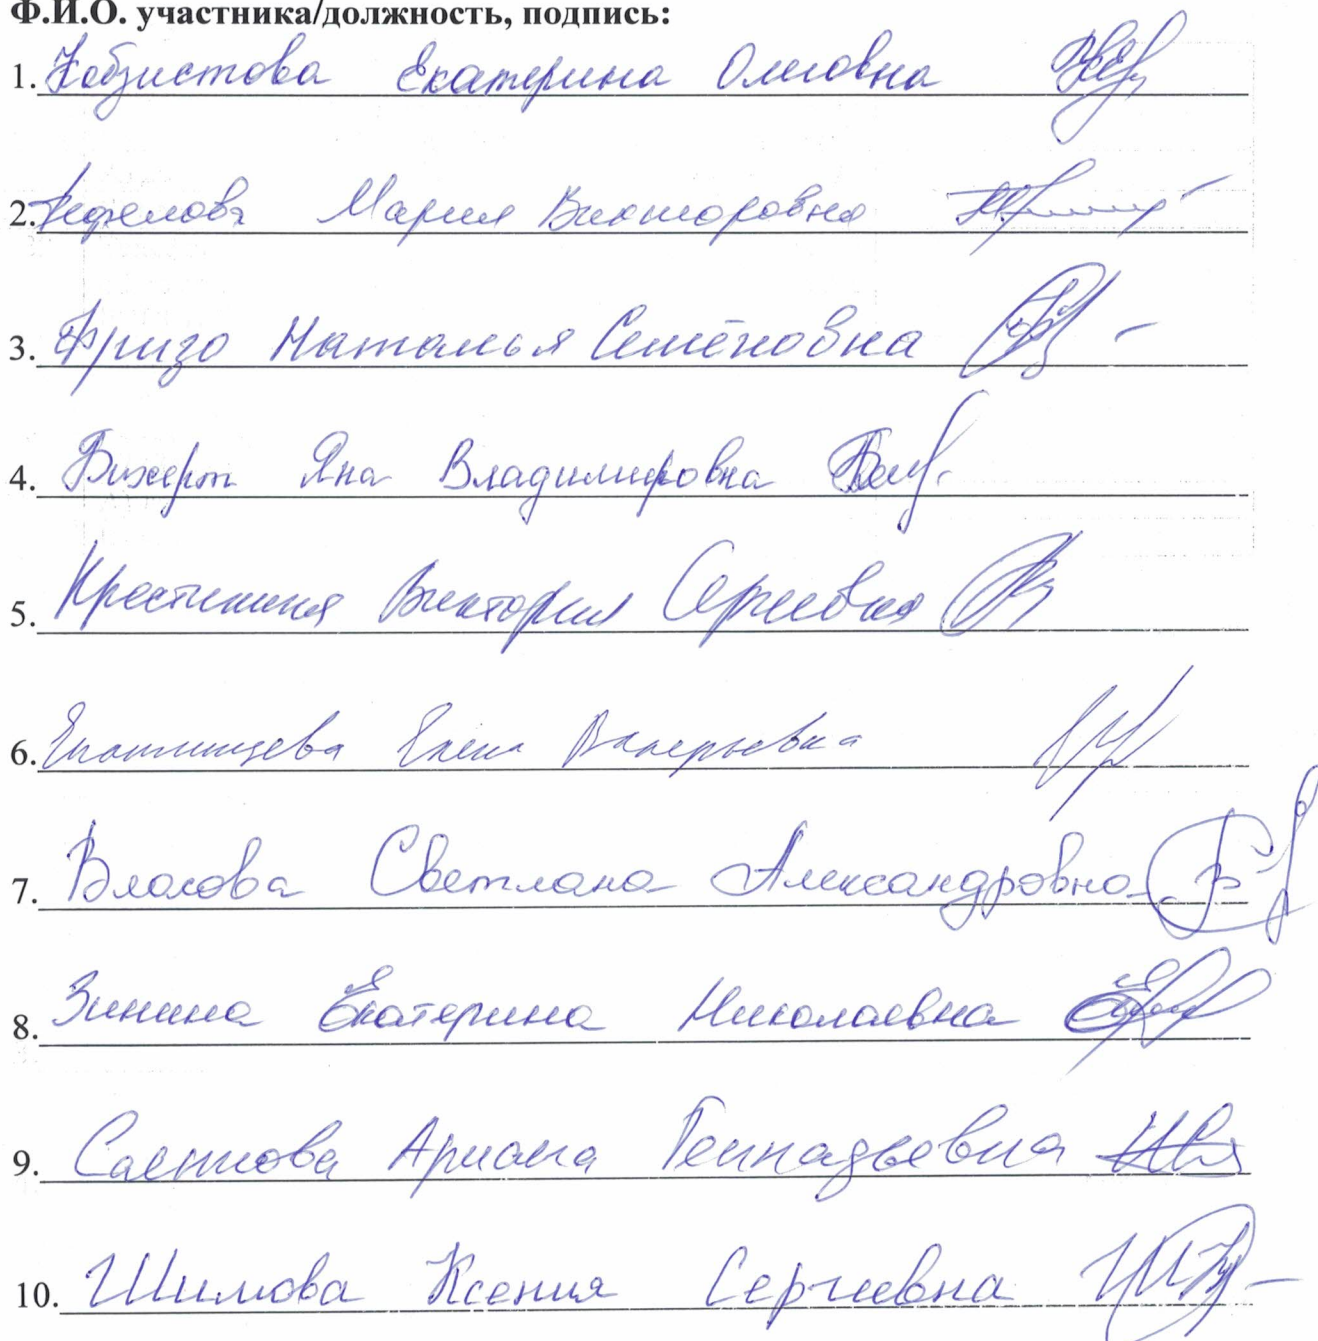 Ф.И.О. участника/должность, подпись:
1. Кобзистова Екатерина Олеговна
2. Мария Викторовна
3. Фризо Наталья Семёновна
4. Бихерт Яна Владимировна
5. Крестинина Виктория Сергеевна
6. Елена Валерьевна
7. Власова Светлана Александровна
8. Зинина Екатерина Николаевна
9. Саетгова Ариана Геннадьевна
10. Шимова Ксения Сергеевна